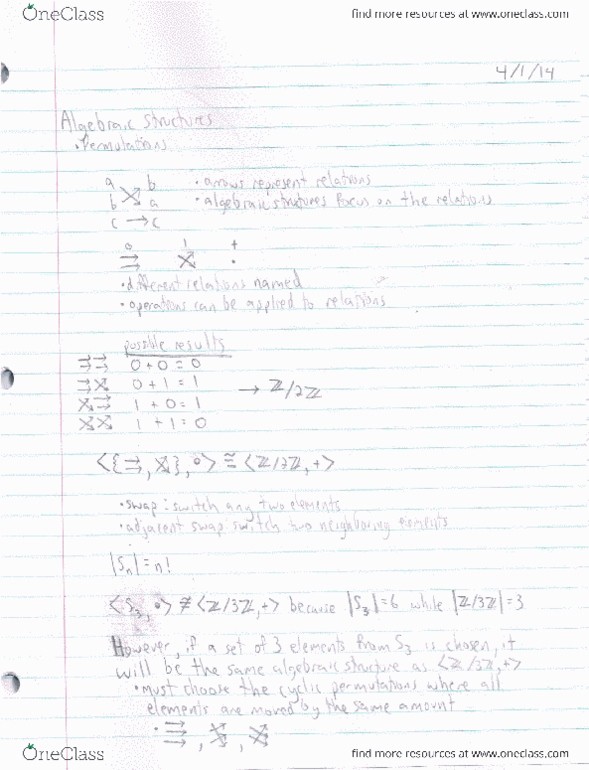 OneClass find more resources at www.oneclass.com
4/1/14
Algebraic Structures
• Permutations
a b • arrows represent relations
b a • algebraic structures focus on the relations
c → c
0 1 +
• different relations named
• operations can be applied to relations
possible results
0 + 0 = 0
0 + 1 = 1 → ℤ/2ℤ
1 + 0 = 1
1 + 1 = 0
<{⇉, ⤨}, ∘> ≅ <ℤ/2ℤ, +>
• swap: switch any two elements
• adjacent swap: switch two neighboring elements
|Sn| = n!
<S3, ∘> ≇ <ℤ/3ℤ, +> because |S3| = 6 while |ℤ/3ℤ| = 3
However, if a set of 3 elements from S3 is chosen, it
will be the same algebraic structure as <ℤ/3ℤ, +>
• must choose the cyclic permutations where all
elements are moved by the same amount
OneClass find more resources at www.oneclass.com